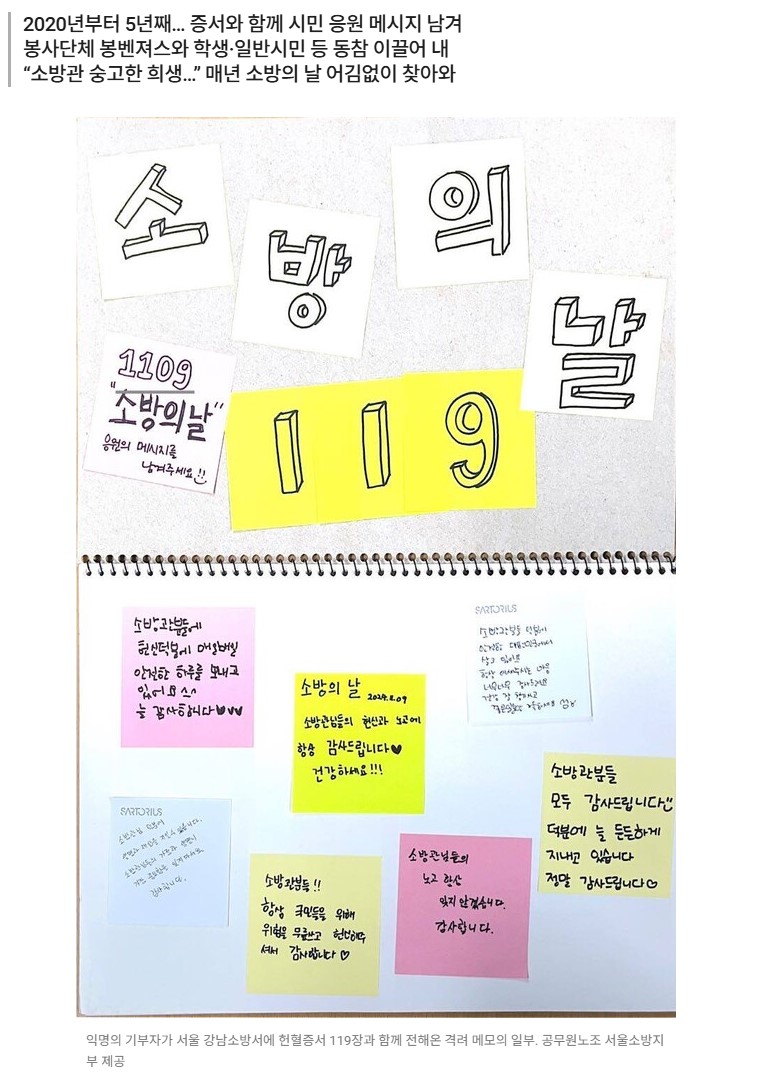 2020년부터 5년째… 증서와 함께 시민 응원 메시지 남겨
봉사단체 봉벤져스와 학생·일반시민 등 동참 이끌어 내
“소방관 숭고한 희생…” 매년 소방의 날 어김없이 찾아와
소방의 날
1109
"소방의날"
응원의 메시지를
남겨주세요!!
119
소방관분들에
헌신덕분에 매일매일
안전한 하루를 보내고
있어요^^
늘 감사합니다♥♥♥
소방의 날 2024.11.09
소방관님들의 헌신과 노고에
항상 감사드립니다♥
건강하세요!!!
SARTORIUS
소방관분들 덕분에
안전한 대한민국에서
살고 있어요
소방관분들
모두 감사드립니다
덕분에 늘 든든하게
지내고 있습니다
정말 감사드립니다♡
SARTORIUS
소방관님 덕분에
감사합니다.
소방관분들!!
항상 국민들을 위해
위험을 무릅쓰고 헌신해주
셔서 감사합니다♡
소방관님들의
노고 항상
잊지 않겠습니다.
감사합니다.
익명의 기부자가 서울 강남소방서에 헌혈증서 119장과 함께 전해온 격려 메모의 일부. 공무원노조 서울소방지
부 제공